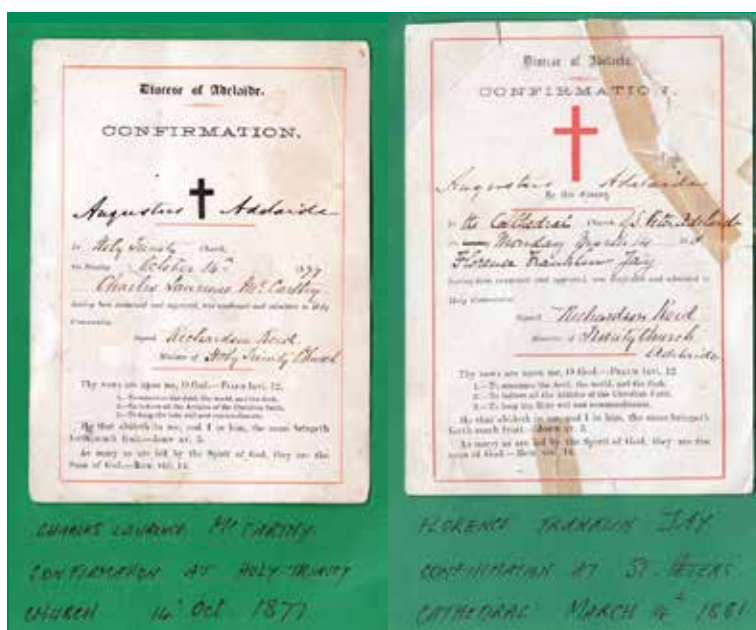 Diocese of Adelaide.
CONFIRMATION.
Augustus Adelaide
In Holy Trinity Church,
on Sunday October 14th 1877
Charles Laurence McCarthy
having been examined and approved, was confirmed and admitted to Holy
Communion.
Signed Richardson Reid
Minister of Holy Trinity Church
Thy vows are upon me, O God.—PSALM lvi. 12.
1.—To renounce the devil, the world, and the flesh.
2.—To believe all the Articles of the Christian Faith.
3.—To keep God's holy will and commandments.
He that abideth in me, and I in him, the same bringeth
forth much fruit.—JOHN xv. 5.
As many as are led by the Spirit of God, they are the
Sons of God.—ROM. viii. 14.
CHARLES LAURENCE McCARTHY
CONFIRMATION AT HOLY TRINITY
CHURCH 14 Oct 1877
Diocese of Adelaide.
CONFIRMATION.
Augustus Adelaide
In the Cathedral Church of S. Peter Adelaide
on Monday March 14
Florence Franklin Jay
having been examined and approved, was confirmed and admitted to
Holy Communion.
Signed Richardson Reid
Minister of Trinity Church
Adelaide
Thy vows are upon me, O God.—PSALM lvi. 12
1.—To renounce the devil, the world, and the flesh.
2.—To believe all the Articles of the Christian Faith.
3.—To keep God's holy will and commandments.
He that abideth in me, and I in him, the same bringeth
forth much fruit.—JOHN xv. 5.
As many as are led by the Spirit of God, they are the
sons of God.—ROM. viii. 14.
FLORENCE FRANKLIN JAY
CONFIRMATION AT ST. PETERS
CATHEDRAL MARCH 14th 1881